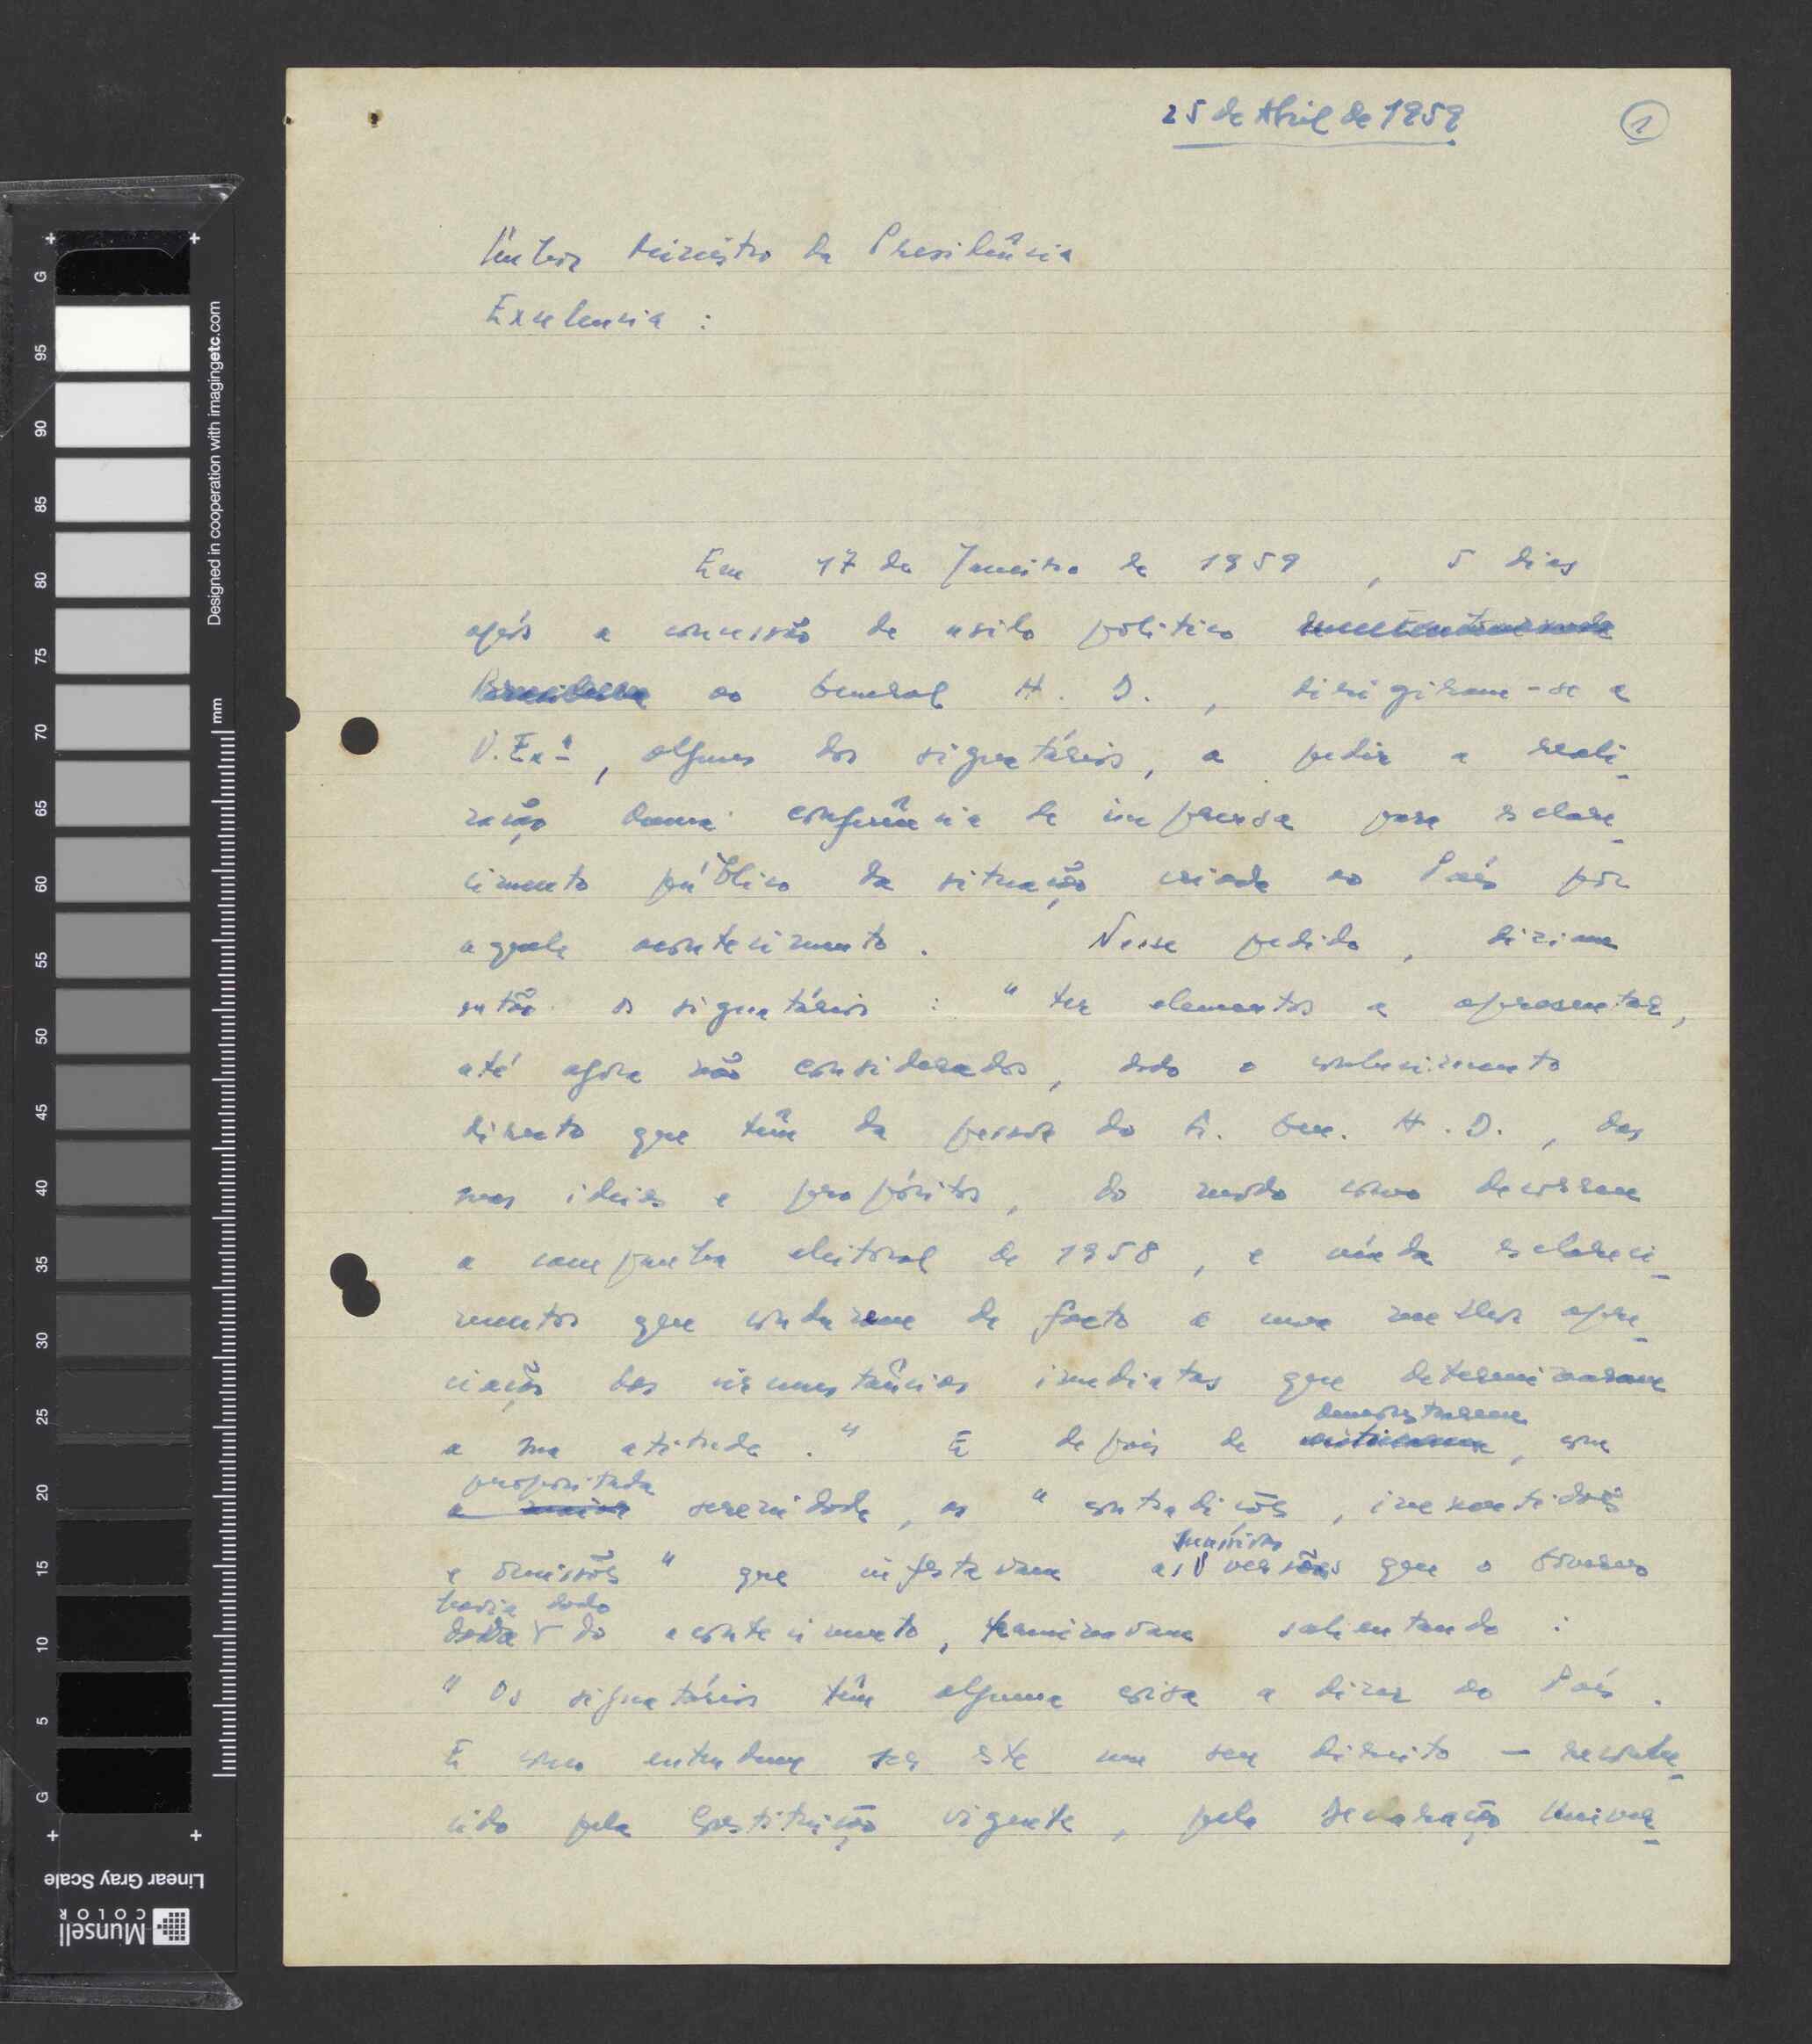 25 de Abril de 1959
1
Senhor Ministro da Presidência
Excelencia :
Em 17 de Janeiro de 1959 , 5 dias
após a concessão de asilo politico
Brasileira ao General H. D. , dirigiram-se a
V. Exª , alguns dos signatários, a pedir a reali-
zação duma conferência de imprensa para esclare-
cimento público da situação criada ao País por
aquele acontecimento . Nesse pedido , diziam
então os signatários : " ter elementos a apresentar,
até agora não considerados, dado o conhecimento
directo que têm da pessoa do Sr. Gen. H. D. , das
suas ideias e propósitos, do modo como decorreu
a campanha eleitoral de 1958 , e ainda esclareci-
mentos que conduzem de facto a uma melhor apre-
ciação das circunstâncias imediatas que determinaram
a sua atitude . " E depois de demonstrarem , com
a maior propositada serenidade , as " contradições , inexactidões
e omissões " que infestavam as sucessivas versões que o Governo
dava havia dado do acontecimento, terminavam salientando :
" Os signatários têm alguma coisa a dizer ao País .
E como entendem ser este um seu direito — reconhe-
cido pela Constituição vigente , pela Declaração Univer-
G
95
90
85
80
75
70
65
60
55
50
45
40
35
30
25
20
15
10
5
G
mm
Designed in cooperation with imagingetc.com
Linear Gray Scale
Munsell
COLOR